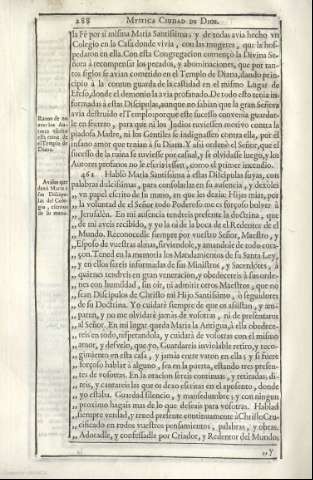 288 MYSTICA CIUDAD DE DIOS.
la Fè por sì misma Maria Santissima; y de todas avia hecho vn
Colegio en la Casa donde vivia, con las mugeres, que la hos-
pedaron en ella. Con esta Congregacion començò la Divina Se-
ñora à recompensar los pecados, y abominaciones, que por tan-
tos siglos se avian cometido en el Templo de Diana, dando prin-
cipio à la comun guarda de la castidad en el mismo Lugar de
Efeso, donde el demonio la avia profanado. De todo esto tenia in-
formadas à estas Discipulas, aunque no sabian que la gran Señora
avia destruido el Templo; porque este sucesso convenia guardar-
le en secreto, para que ni los Judios tuviessen motivo contra la
piadosa Madre, ni los Gentiles se indignassen contra ella, por el
insano amor que tenian à su Diana. Y assi ordenò el Señor, que el
sucesso de la ruina se tuviesse por casual, y se olvidasse luego, y los
Autores profanos no le escriviessen, como el primer incendio.
Razon de no
aver los
el Templo de
Diana.
461 Hablò Maria Santissima à estas Discipulas suyas, con
palabras dulcissimas, para consolarlas en su ausencia, y dexòles
vn papel escrito de su mano, en que les dezia: Hijas mias, por
,, la voluntad de el Señor todo Poderoso me es forçoso bolver à
,, Jerusalèn. En mi ausencia tendreis presente la doctrina, que
,, de mi aveis recibido, y yo la oì de la boca de el Redentor de el
,, Mundo. Reconocedle siempre por vuestro Señor, Maestro, y
,, Esposo de vuestras almas, sirviendole, y amandole de todo cora-
,, çon. Tened en la memoria los Mandamientos de su Santa Ley,
,, y en ellos sereis informadas de sus Ministros, y Sacerdotes, à
,, quienes tendreis en gran veneracion, y obedecereis à sus orde-
,, nes con humildad, sin oìr, ni admitir otros Maestros, que no
,, sean Discipulos de Christo mi Hijo Santissimo, y seguidores
,, de su Doctrina. Yo cuidarè siempre de que os assistan, y am-
,, paren, y no me olvidarè jamàs de vosotras, ni de presentaros
,, al Señor. En mi lugar queda Maria la Antigua, à ella obedece-
,, reis en todo, respetandola, y cuidarà de vosotras con el mismo
,, amor, y desvelo, que yo. Guardareis inviolable retiro, y reco-
,, gimiento en esta casa, y jamàs entre varon en ella; y si fuere
,, forçoso hablar à alguno, sea en la puerta, estando tres presen-
,, tes de vosotras. En la oracion sereis continuas, y retiradas; di-
,, reis, y cantareis las que os dexo escritas en el aposento, donde
,, yo estaba. Guardad silencio, y mansedumbre; y con ningun
,, proximo hagais mas de lo que deseais para vosotras. Hablad
,, siempre verdad, y tened presente continuamente à Christo Cru-
,, cificado en todos vuestros pensamientos, palabras, y obras.
,, Adoradle, y confessadle por Criador, y Redentor del Mundo.
Avisos que
dexò Maria à
sus Discipu-
las del Cole-
gio, escritos
de su mano.
,,Y